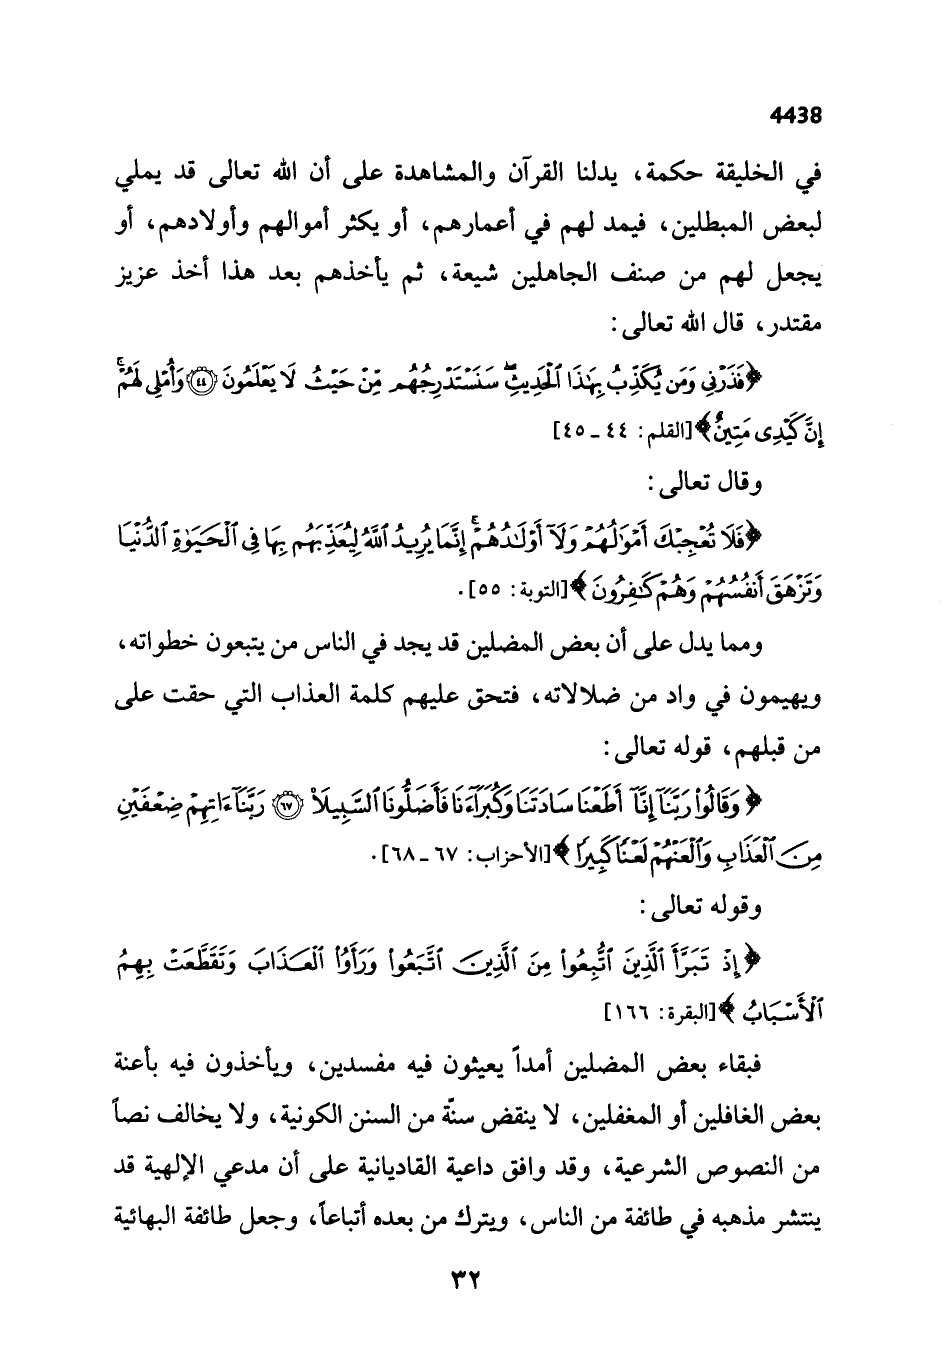 4438
في الخليقة حكمة، يدلنا القرآن والمشاهدة على أن الله تعالى قد يملي
لبعض المبطلين، فيمد لهم في أعمارهم، أو يكثر أموالهم وأولادهم، أو
يجعل لهم من صنف الجاهلين شيعة، ثم يأخذهم بعد هذا أخذ عزيز
مقتدر، قال الله تعالى:
﴿فَذَرْنِي وَمَن يُكَذِّبُ بِهَٰذَا ٱلْحَدِيثِۖ سَنَسْتَدْرِجُهُم مِّنْ حَيْثُ لَا يَعْلَمُونَ ٤٤ وَأُمْلِي لَهُمْۚ
إِنَّ كَيْدِي مَتِينٌ﴾ [القلم: ٤٤ ـ ٤٥]
وقال تعالى:
﴿فَلَا تُعْجِبْكَ أَمْوَٰلُهُمْ وَلَآ أَوْلَٰدُهُمْۚ إِنَّمَا يُرِيدُ ٱللَّهُ لِيُعَذِّبَهُم بِهَا فِي ٱلْحَيَوٰةِ ٱلدُّنْيَا
وَتَزْهَقَ أَنفُسُهُمْ وَهُمْ كَٰفِرُونَ﴾ [التوبة: ٥٥].
ومما يدل على أن بعض المضلين قد يجد في الناس من يتبعون خطواته،
ويهيمون في واد من ضلالاته، فتحق عليهم كلمة العذاب التي حقت على
من قبلهم، قوله تعالى:
﴿وَقَالُوا۟ رَبَّنَآ إِنَّآ أَطَعْنَا سَادَتَنَا وَكُبَرَآءَنَا فَأَضَلُّونَا ٱلسَّبِيلَا۠ ٦٧ رَبَّنَآ ءَاتِهِمْ ضِعْفَيْنِ
مِنَ ٱلْعَذَابِ وَٱلْعَنْهُمْ لَعْنًا كَبِيرًا﴾ [الأحزاب: ٦٧ ـ ٦٨].
وقوله تعالى:
﴿إِذْ تَبَرَّأَ ٱلَّذِينَ ٱتُّبِعُوا۟ مِنَ ٱلَّذِينَ ٱتَّبَعُوا۟ وَرَأَوُا۟ ٱلْعَذَابَ وَتَقَطَّعَتْ بِهِمُ
ٱلْأَسْبَابُ﴾ [البقرة: ١٦٦]
فبقاء بعض المضلين أمداً يعيثون فيه مفسدين، ويأخذون فيه بأعنة
بعض الغافلين أو المغفلين، لا ينقض سنّة من السنن الكونية، ولا يخالف نصاً
من النصوص الشرعية، وقد وافق داعية القاديانية على أن مدعي الإلهية قد
ينتشر مذهبه في طائفة من الناس، ويترك من بعده أتباعاً، وجعل طائفة البهائية
٣٢